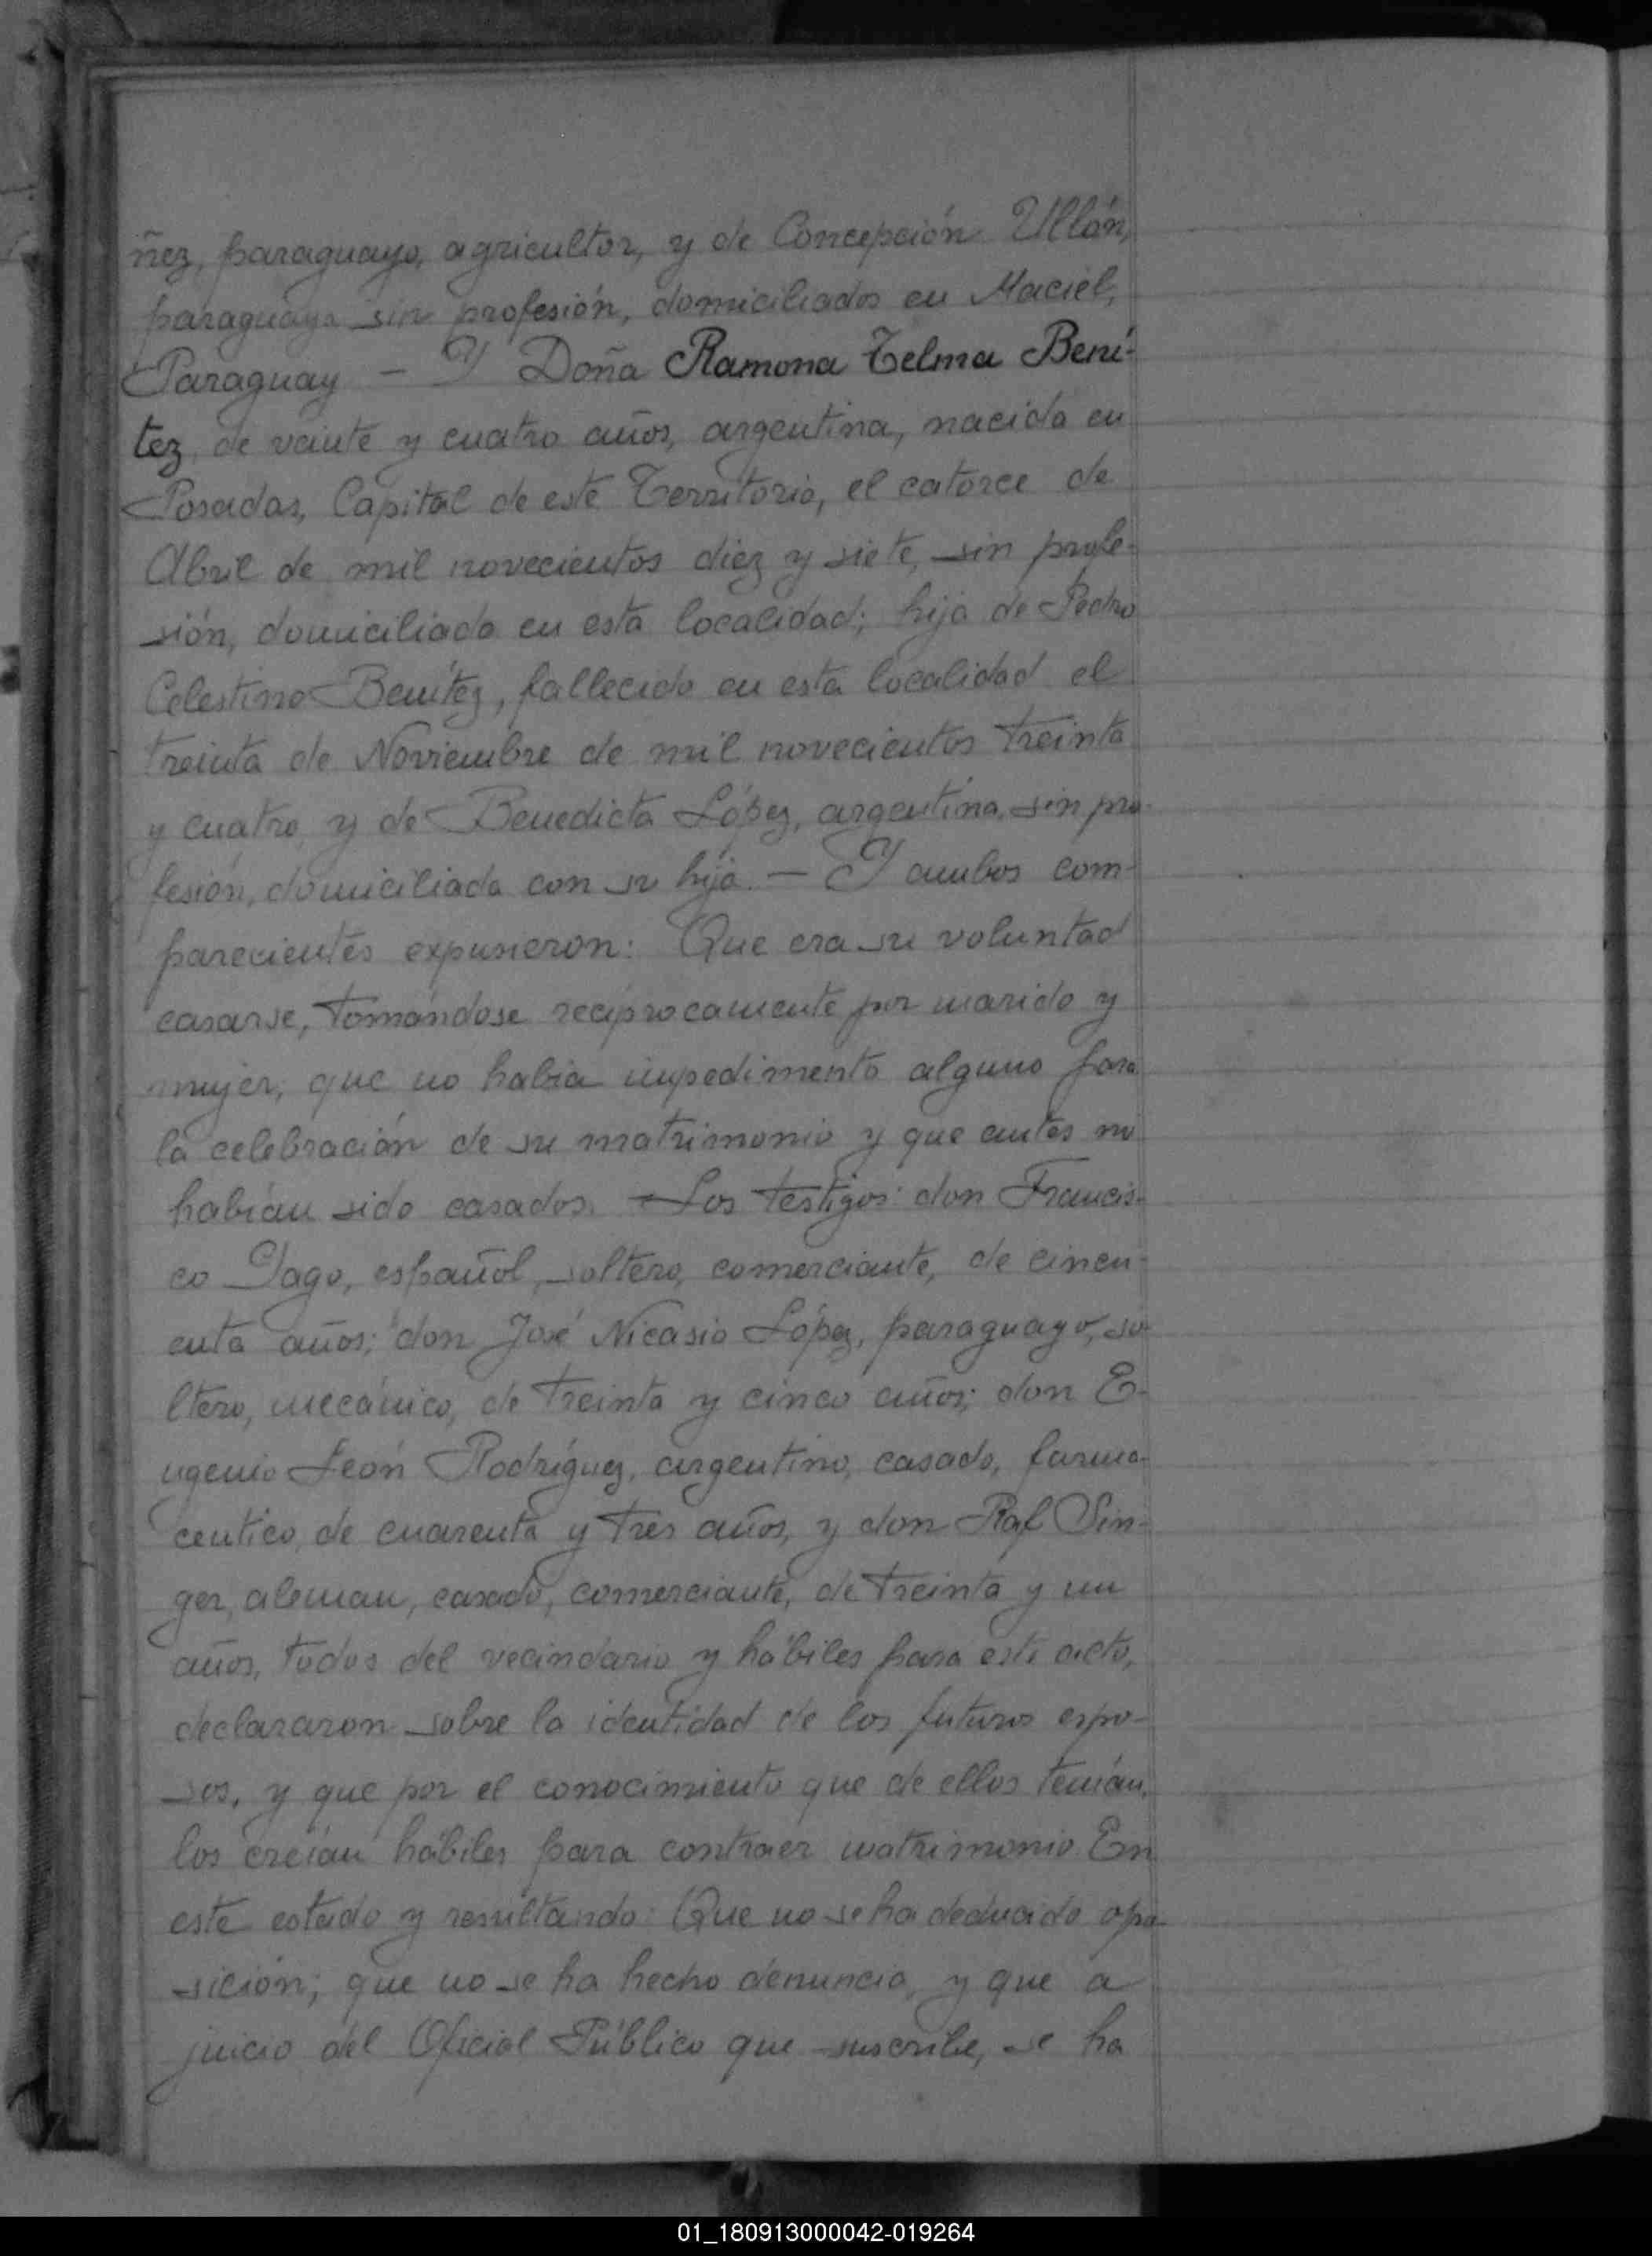 ñez, paraguayo, agricultor, y de Concepción Ullán,
paraguaya sin profesión, domiciliados en Maciel,
Paraguay — Y Doña Ramona Telma Bení-
tez, de veinte y cuatro años, argentina, nacida en
Posadas, Capital de este Territorio, el catorce de
Abril de mil novecientos diez y siete, sin profe-
sión, domiciliada en esta localidad; hija de Pedro
Celestino Benítez, fallecido en esta localidad el
treinta de Noviembre de mil novecientos treinta
y cuatro, y de Benedicta López, argentina, sin pro-
fesión, domiciliada con su hija. — Y ambos com-
parecientes expusieron: Que era su voluntad
casarse, tomándose recíprocamente por marido y
mujer, que no había impedimento alguno para
la celebración de su matrimonio y que antes no
habían sido casados. Los testigos: don Francis-
co Yago, español, soltero, comerciante, de cincu-
enta años; don José Nicasio López, paraguayo, so-
ltero, mecánico, de treinta y cinco años; don E-
ugenio León Rodríguez, argentino, casado, farma-
ceutico, de cuarenta y tres años, y don Raf Sin-
ger, aleman, casado, comerciante, de treinta y un
años, todos del vecindario y hábiles para este acto,
declararon sobre la identidad de los futuros espo-
sos, y que por el conocimiento que de ellos tenían,
los creían hábiles para contraer matrimonio. En
este estado y resultando: Que no se ha deducido opo-
sición; que no se ha hecho denuncia, y que a
juicio del Oficial Público que suscribe, se ha
01_180913000042-019264